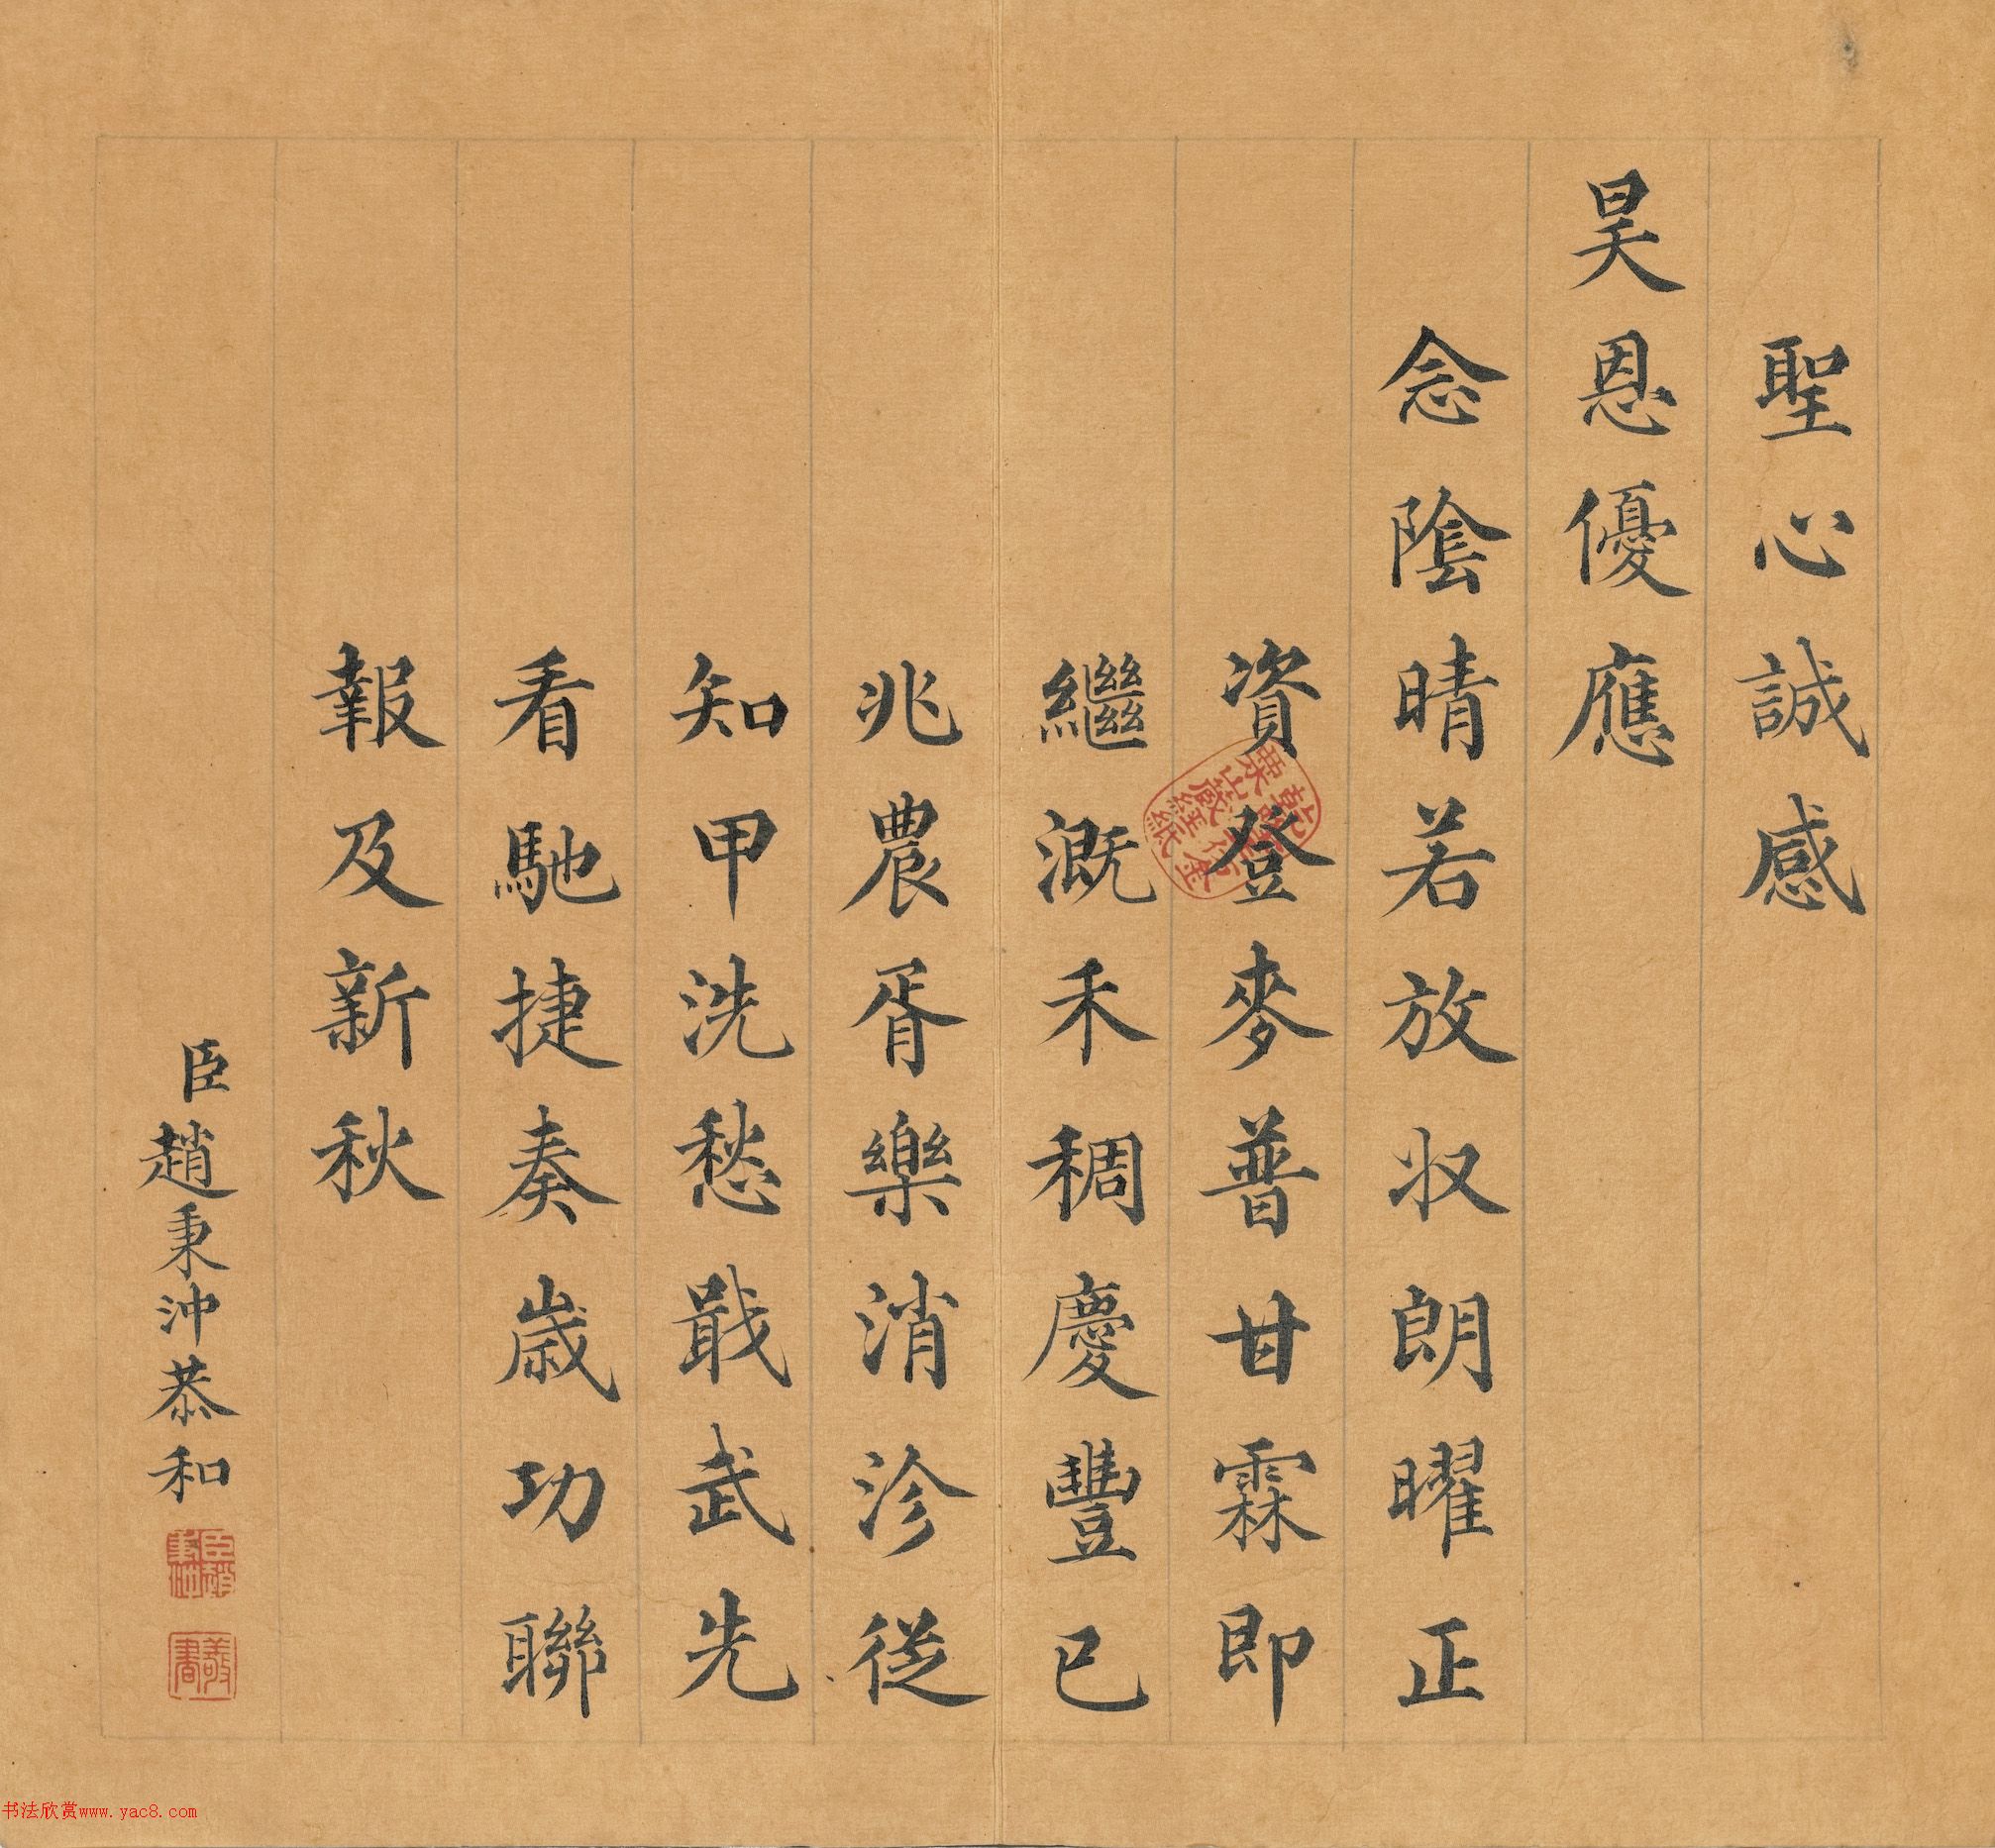 聖心誠感
昊恩優應
念陰晴若放収朗曜正
資登麥普甘霖即
繼溉禾稠慶豐已
兆農胥樂消沴從
知甲洗愁戢武先
看馳捷奏歲功聯
報及新秋
臣趙秉沖恭和
乾隆年仿金粟山藏經紙
臣趙秉沖
敬書
书法欣赏www.yac8.com